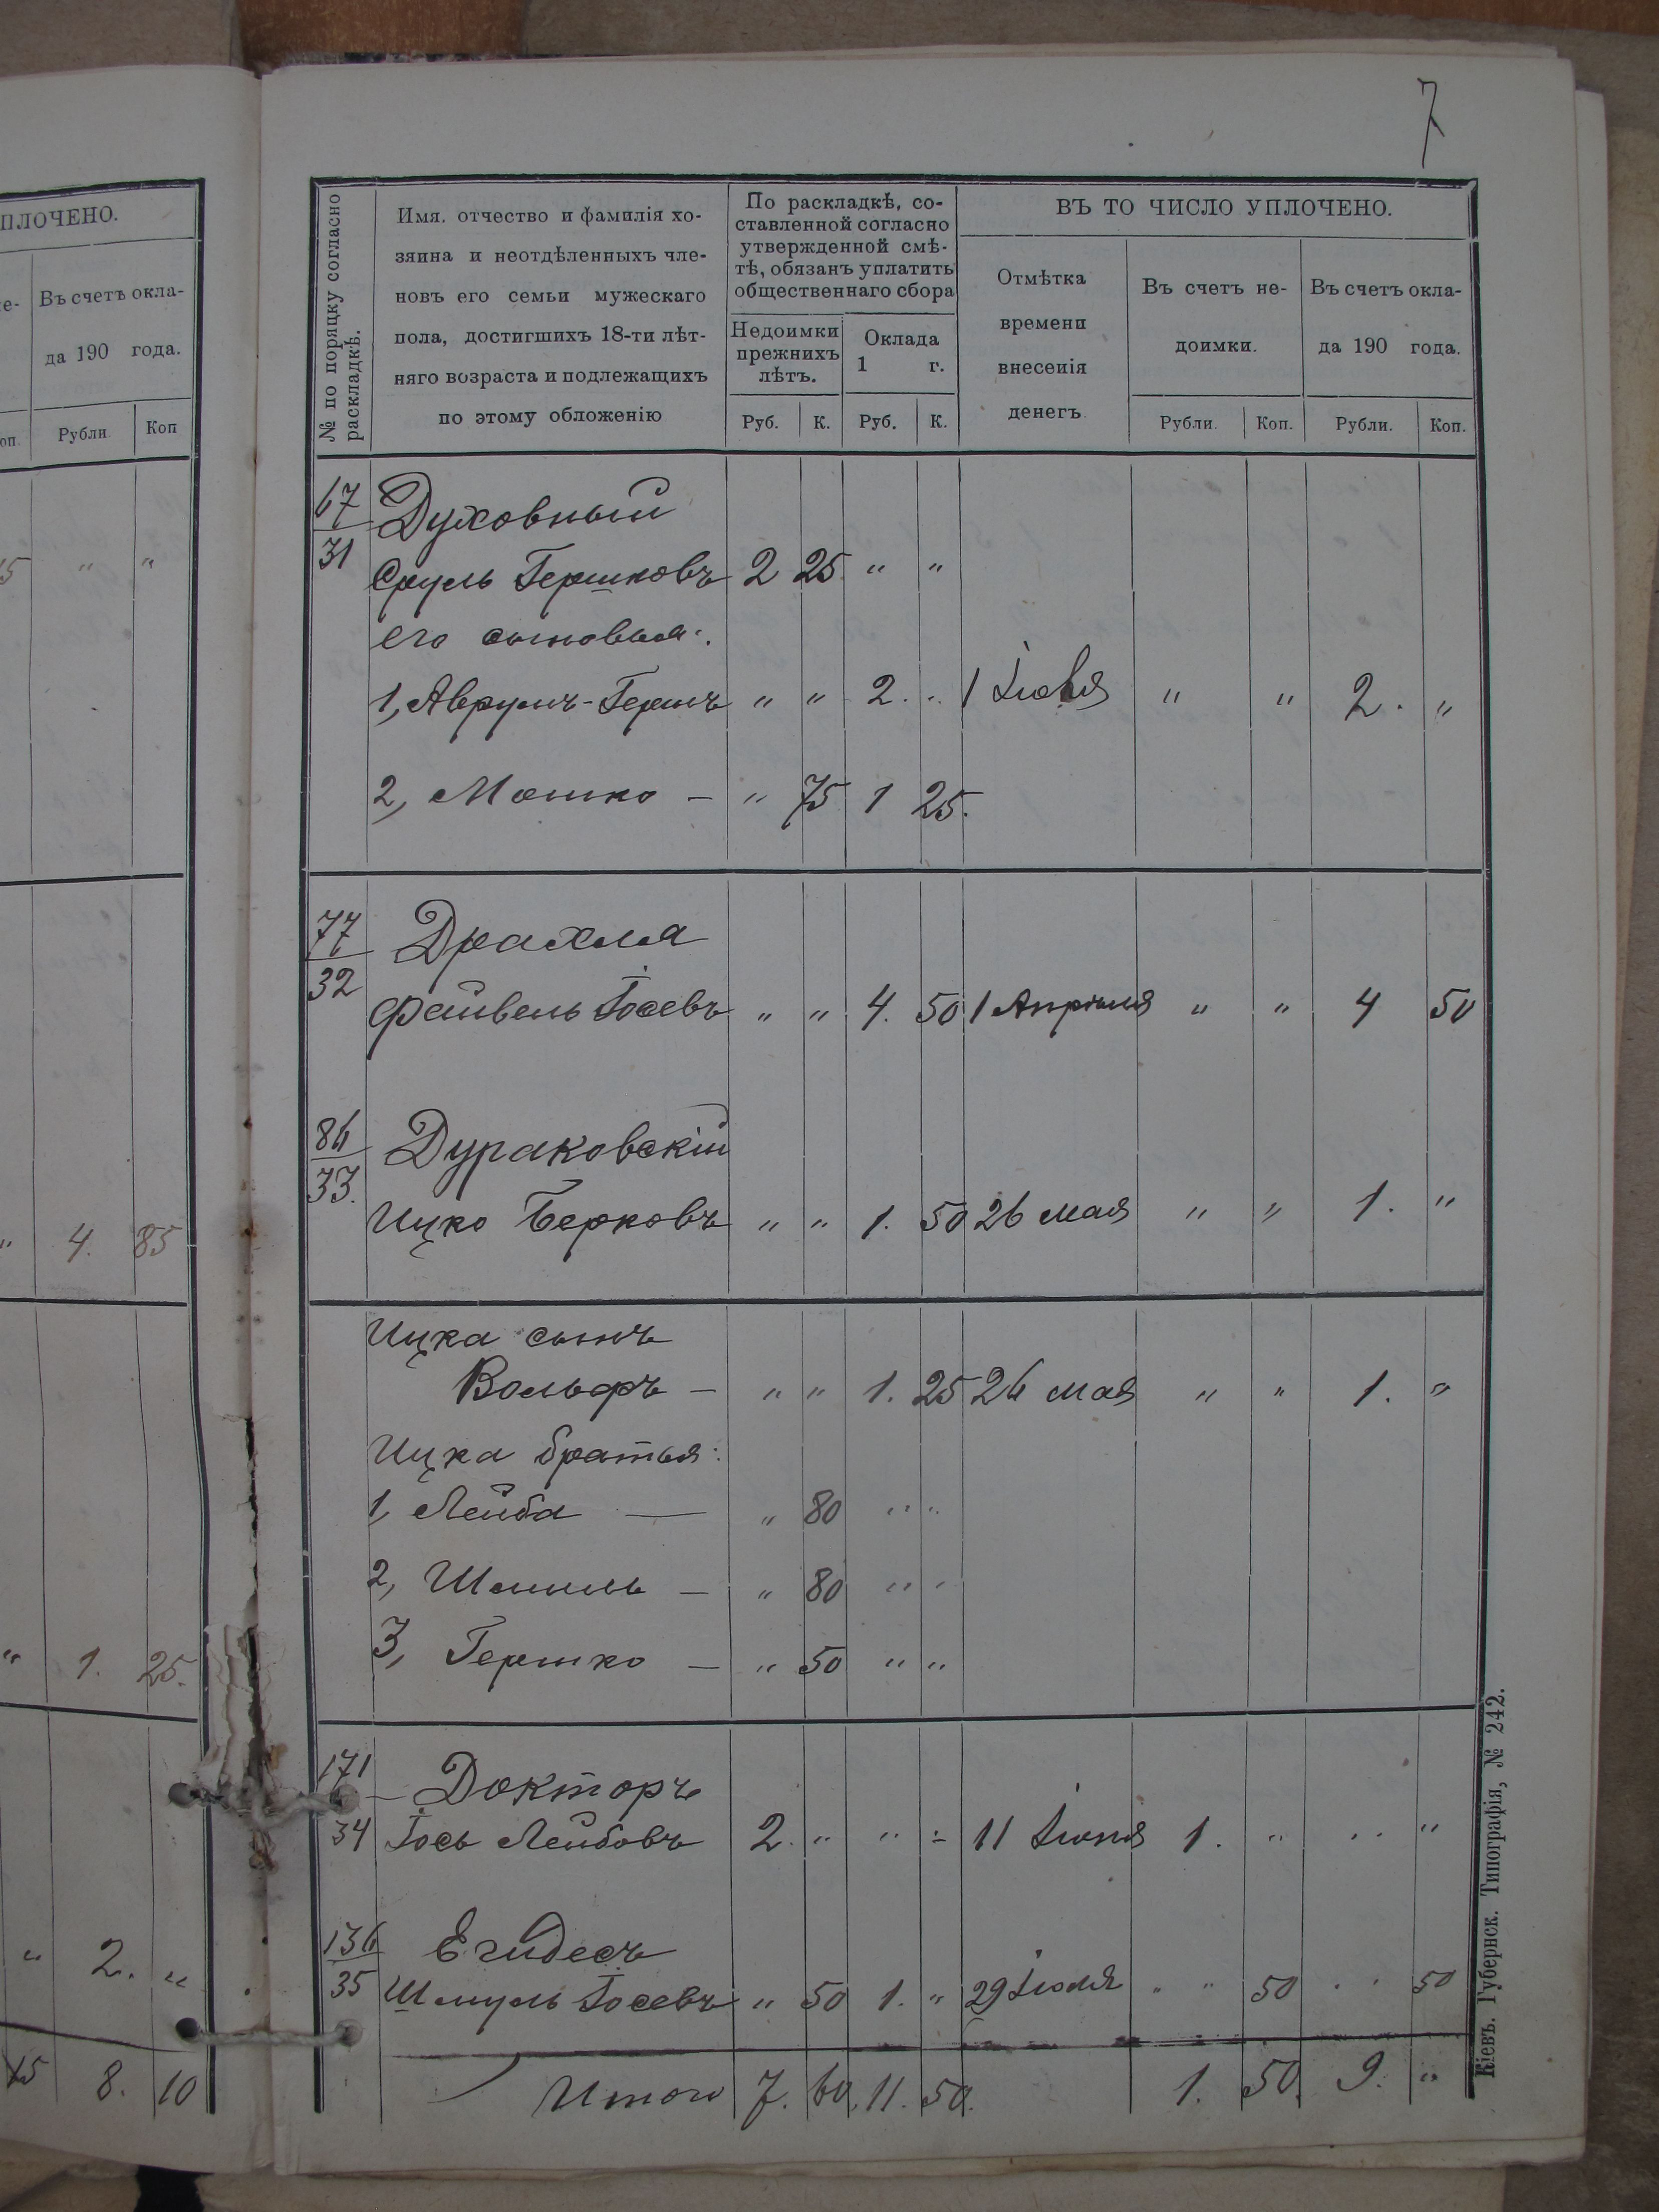 7
ПЛОЧЕНО.
Въ счетъ окла-
да 190 года.
Рубли. Коп
5 " "
" 4. 85
" 1. 25.
" 2. "
8. 10
№ по поряцку согласно
раскладкѣ.
Имя. отчество и фамилія хо-
зяина и неотдѣленныхъ чле-
новъ его семьи мужескаго
пола, достигшихъ 18-ти лѣт-
няго возраста и подлежащихъ
по этому обложенію
По раскладкѣ, со-
ставленной согласно
утвержденной смѣ-
тѣ, обязанъ уплатить
общественнаго сбора
Недоимки
прежнихъ
лѣтъ.
Оклада
1 г.
Руб. К. Руб. К.
ВЪ ТО ЧИСЛО УПЛОЧЕНО.
Отмѣтка
времени
внесенія
денегъ
Въ счетъ не-
доимки.
Въ счетъ окла-
да 190 года.
Рубли. Коп. Рубли. Коп.
67 Духовный
31 Сруль Гершковъ 2 25 " "
его сыновья:
1, Аврумъ-Гершъ " " 2. " 1 " " 2. "
2, Мошко — " 75 1 25.
77 Драхля
32 Файвель Іосевъ " " 4. 50 1 Апрѣля " " 4 50
86 Дураковскій
33. Ицко Берковъ " " 1. 50 26 мая " " 1. "
Ицка сынъ
Вольфъ — " " 1. 25 26 мая " " 1. "
Ицка братья:
1, Лейба — " 80 " "
2, Шмиль — " 80 " "
3, Гершко — " 50 " "
171 Докторъ
34 Іось Лейбовъ 2. " " " 11 Іюня 1. " " "
136 Егидесъ
35 Шмуль Іосевъ " 50 1. " 29 Іюля " " 50 " 50
Итого 7. 60. 11. 50. 1. 50. 9. "
Кіевъ. Губернск. Типографія, № 242.